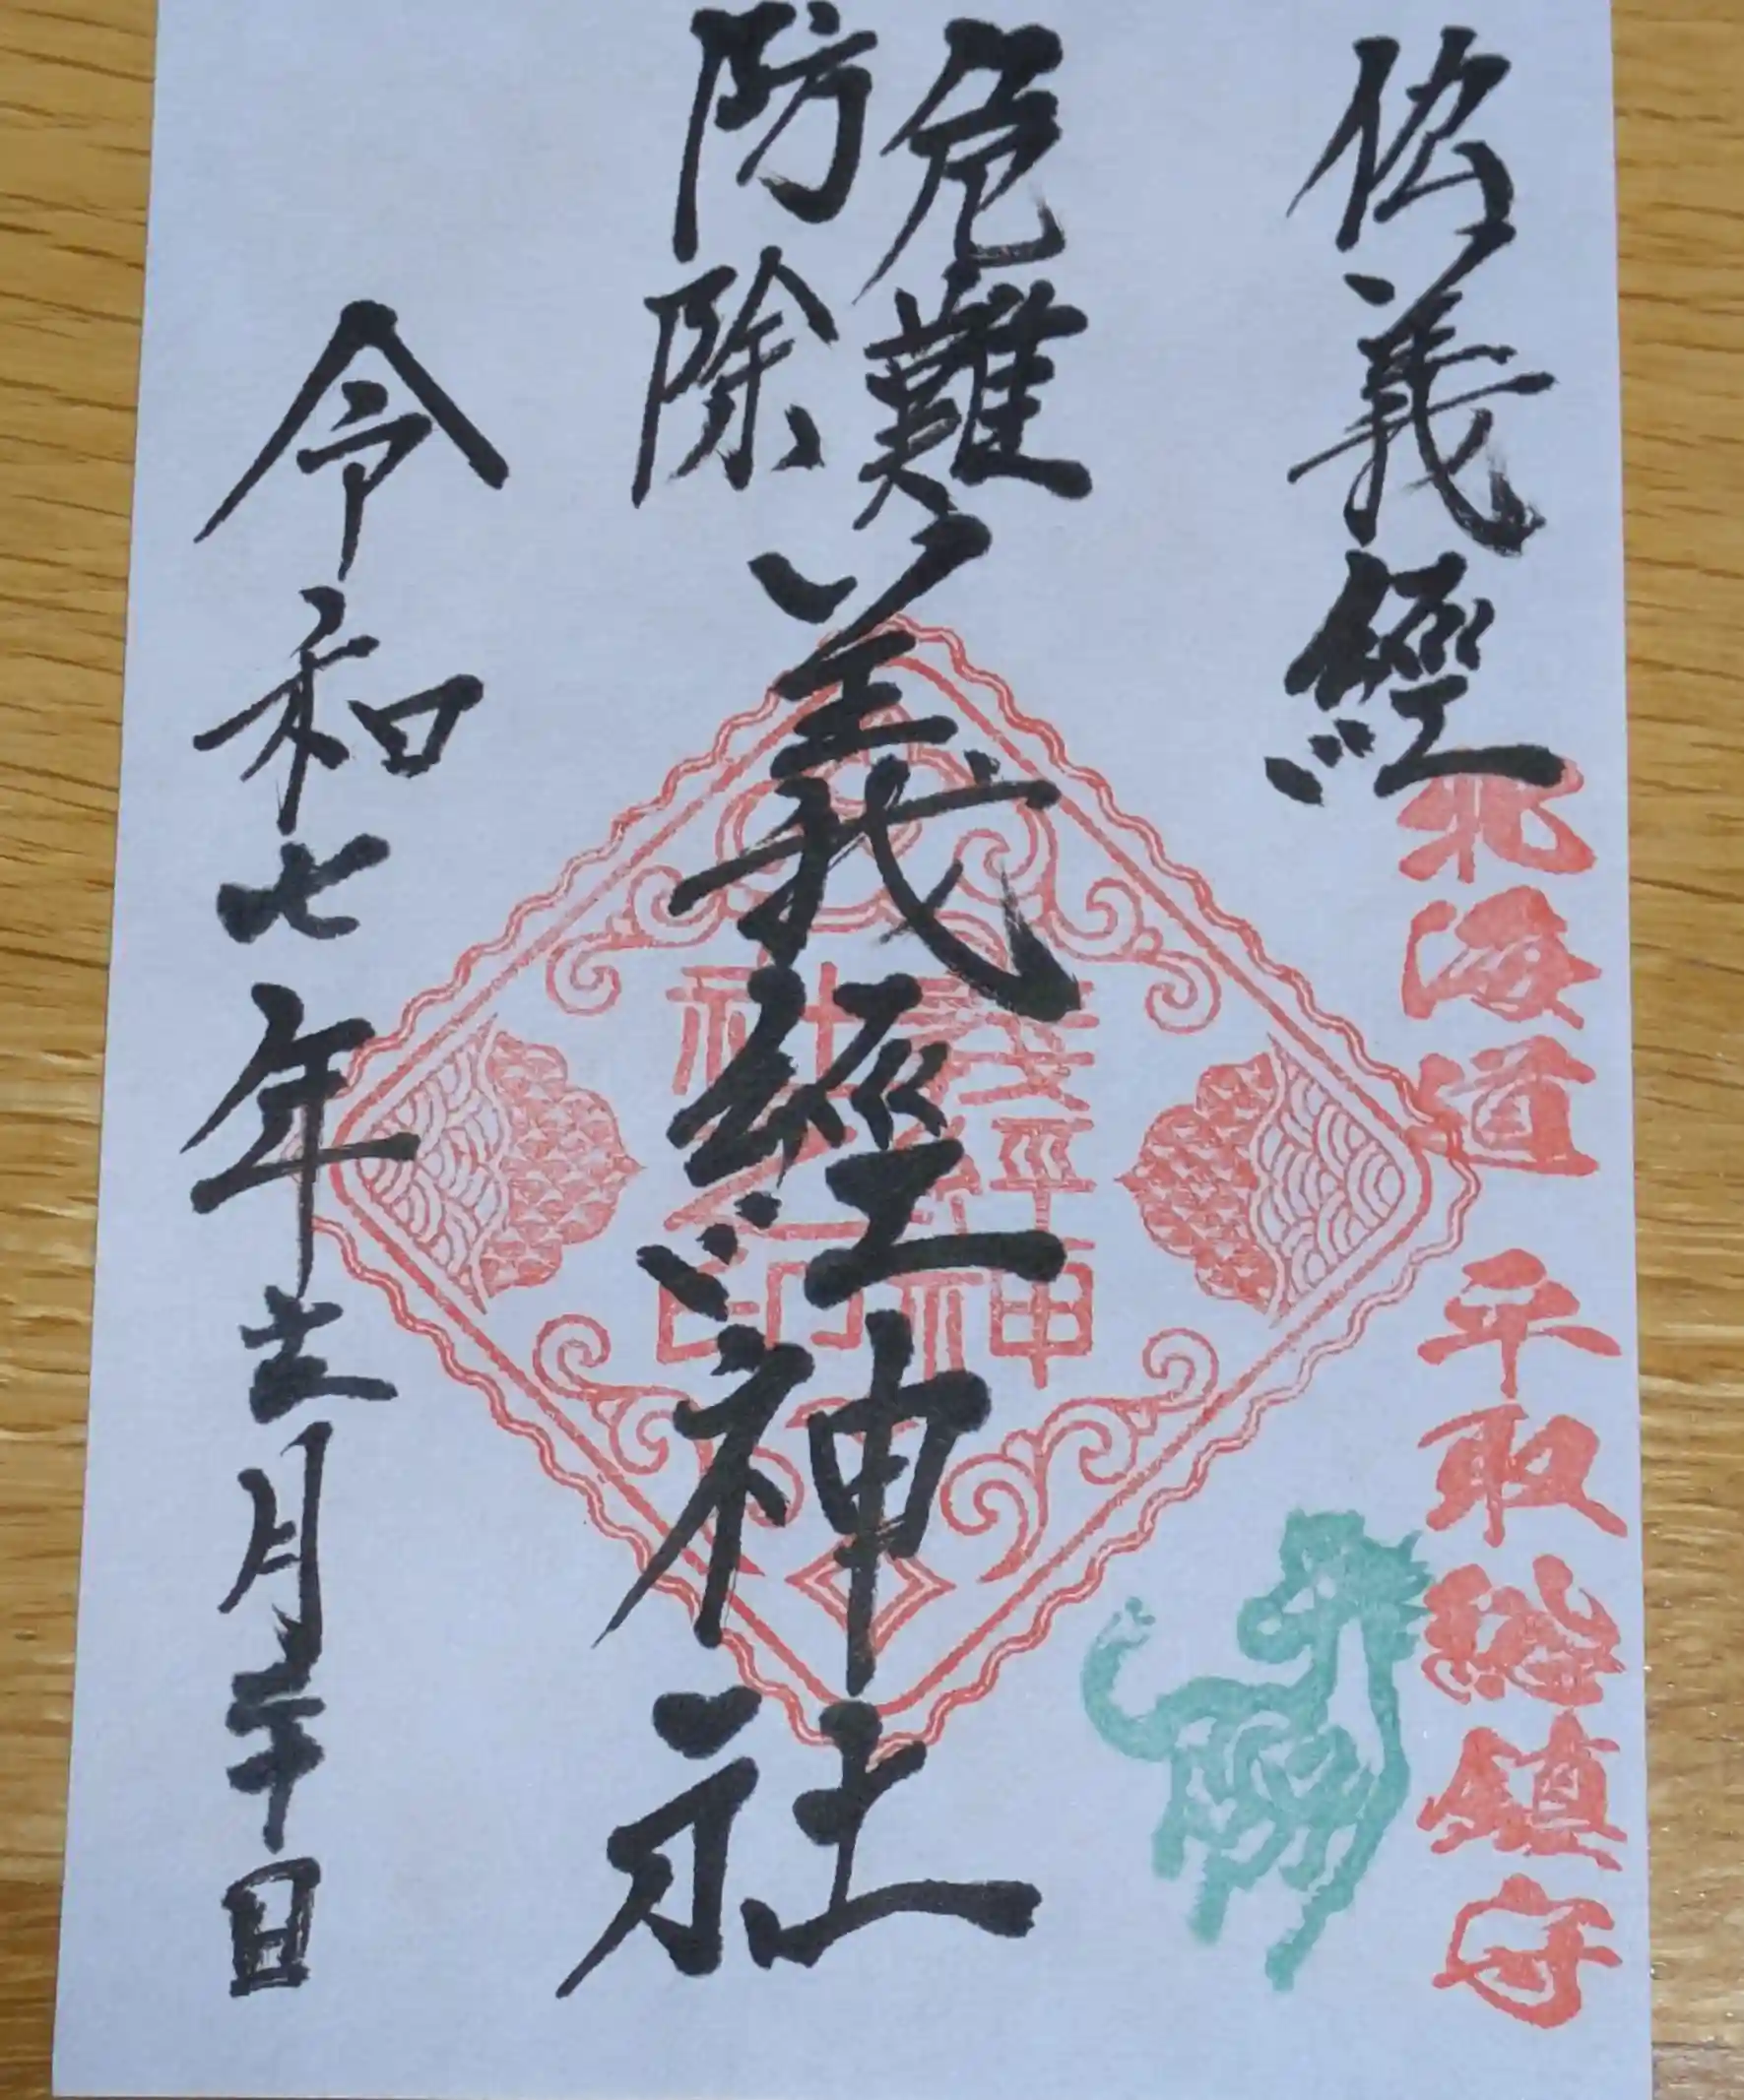 義經
北海道 平取総鎮守
危難
防除
義經神社
義経神
社之印
令和七年十一月三十日